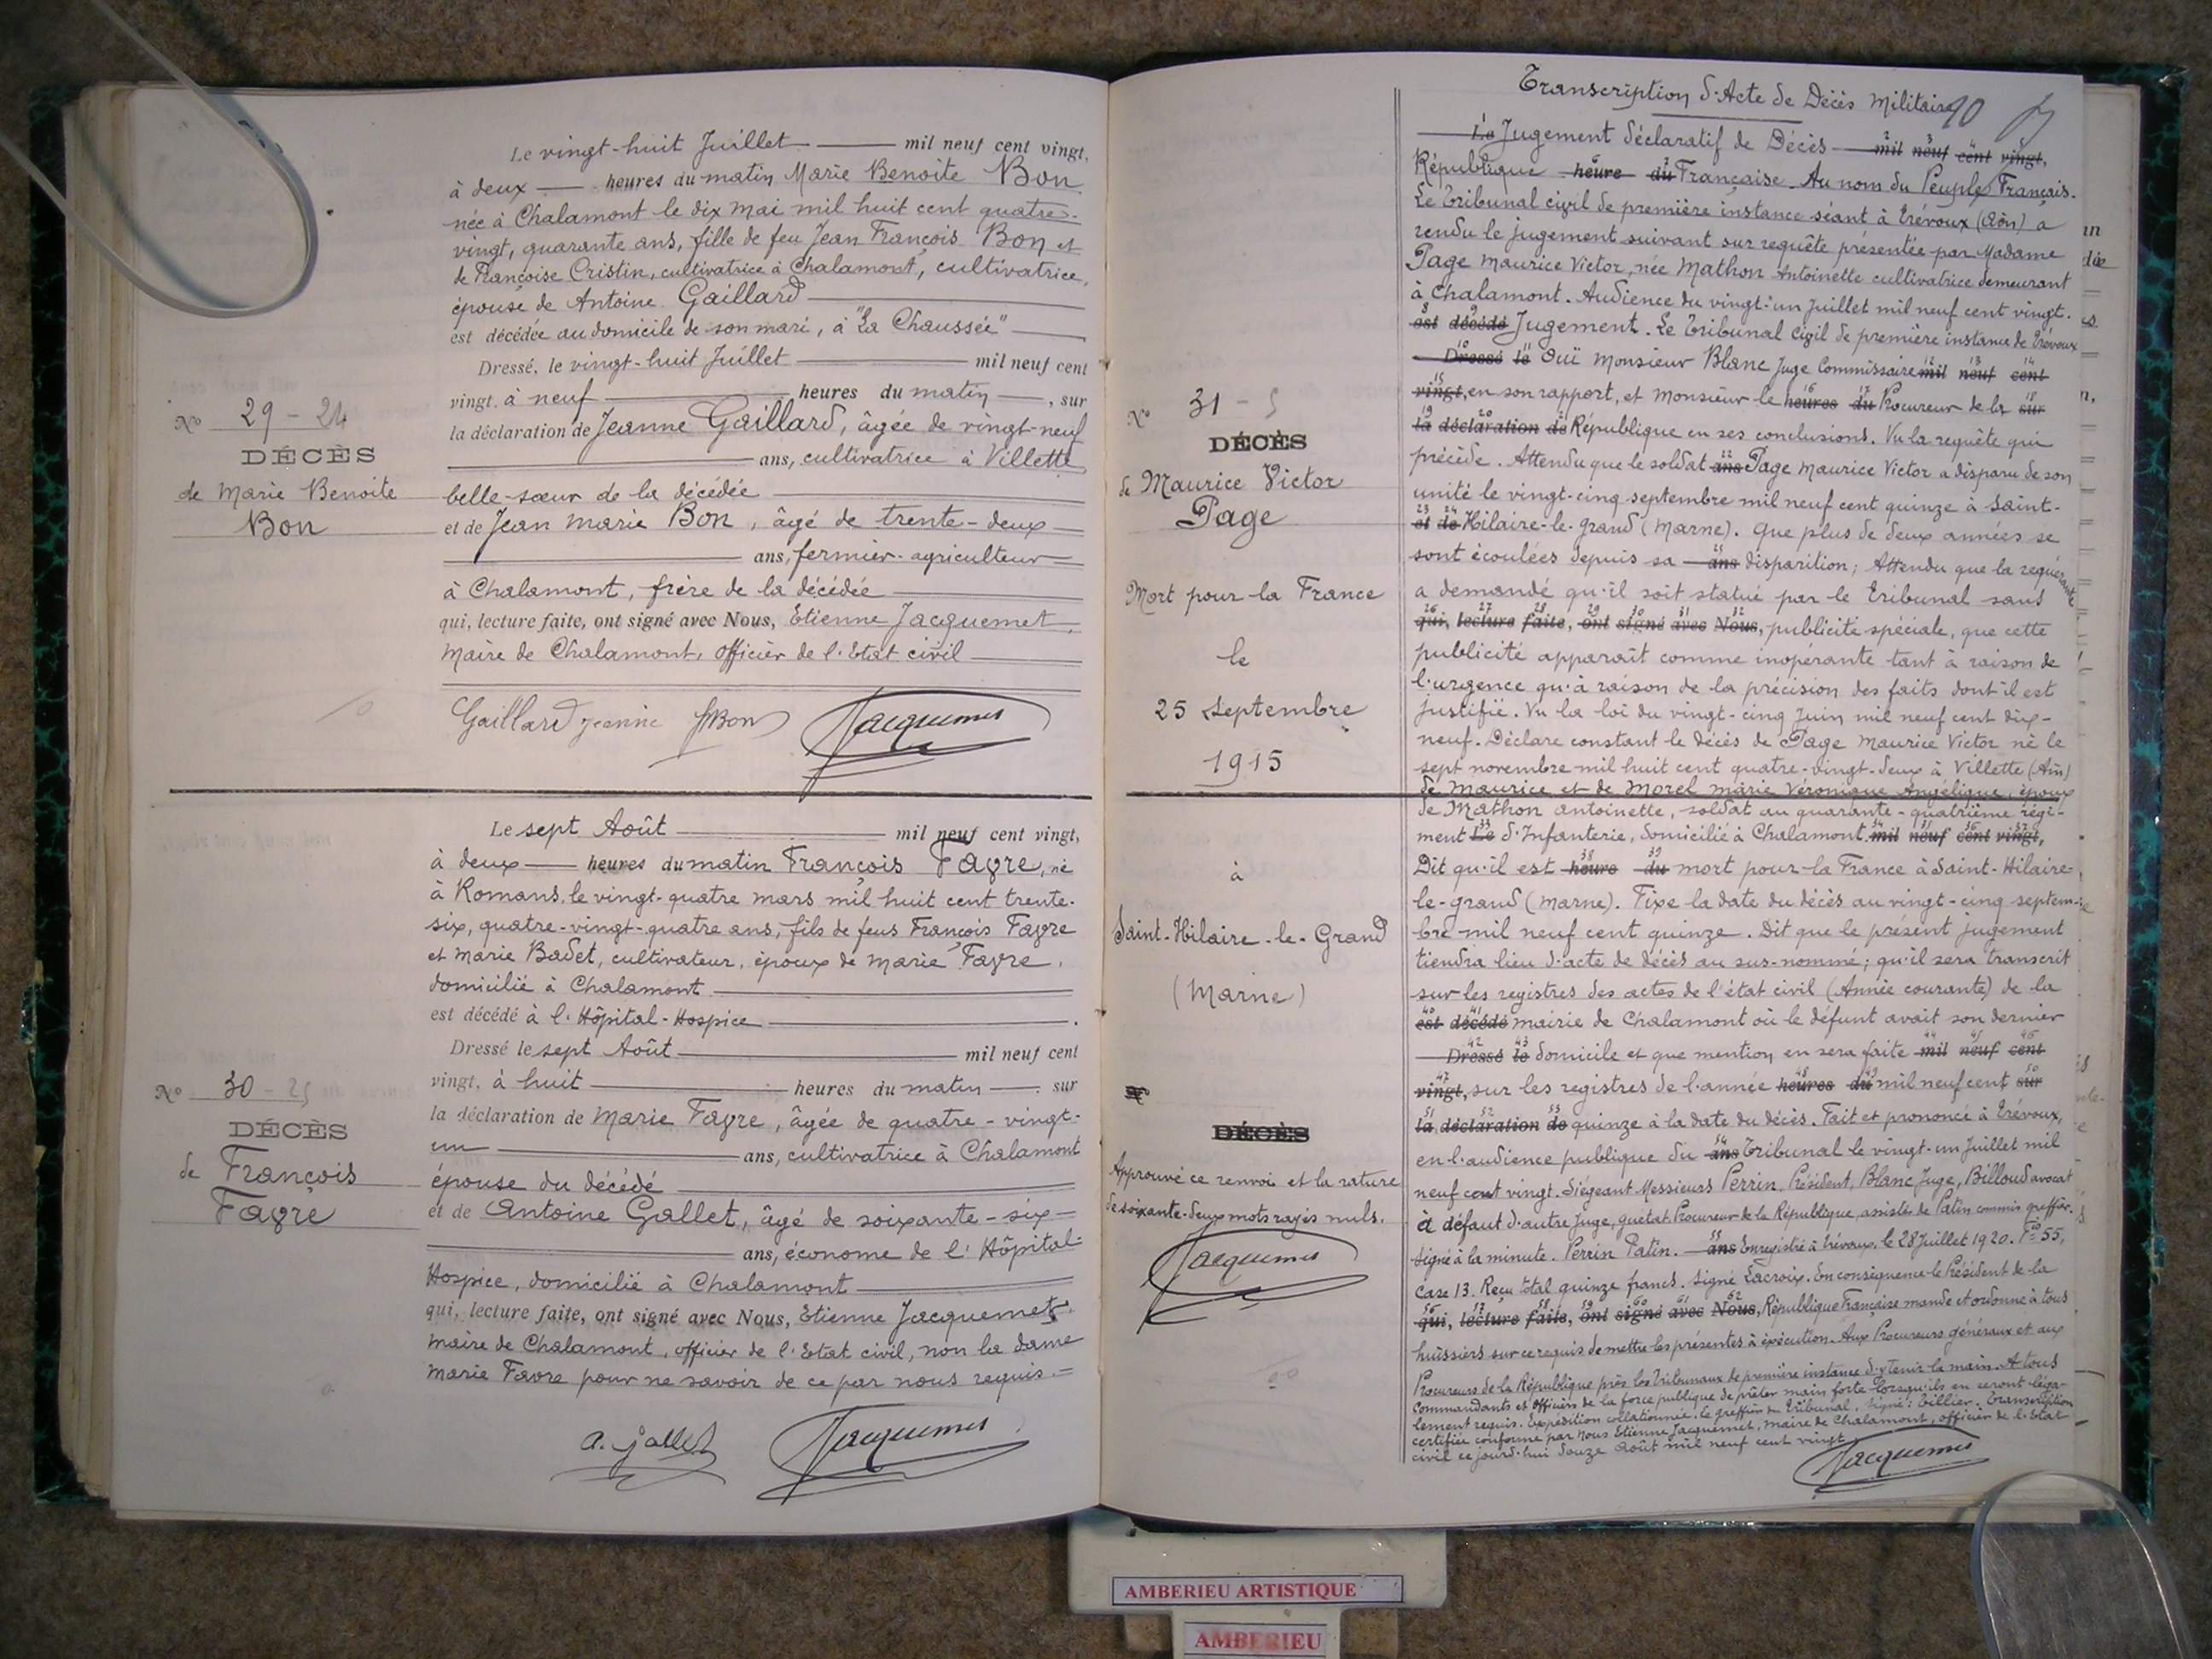 Le vingt-huit Juillet mil neuf cent vingt,
à deux heures du matin Marie Benoite Bon
née à Chalamont le dix mai mil huit cent quatre-
vingt, quarante ans, fille de feu Jean François Bon et
de Françoise Cristin, cultivatrice à Chalamont, cultivatrice,
épouse de Antoine Gaillard
est décédée au domicile de son mari, à "La Chaussée"
Dressé, le vingt-huit Juillet mil neuf cent
vingt, à neuf heures du matin, sur
la déclaration de Jeanne Gaillard, âgée de vingt-neuf
ans, cultivatrice à Villette
belle-sœur de la décédée
et de Jean Marie Bon, âgé de trente-deux
ans, fermier-agriculteur
à Chalamont, frère de la décédée
qui, lecture faite, ont signé avec Nous, Etienne Jacquemet,
Maire de Chalamont, officier de l'Etat civil
Gaillard Jeanne JMBon Jacquemet
N° 29 - 24
DÉCÈS
de Marie Benoite
Bon
Le sept Août mil neuf cent vingt,
à deux heures du matin François Favre, né
à Romans, le vingt-quatre mars mil huit cent trente-
six, quatre-vingt-quatre ans, fils de feus François Favre
et Marie Badet, cultivateur, époux de Marie Favre,
domicilié à Chalamont
est décédé à l'Hôpital-Hospice
Dressé le sept Août mil neuf cent
vingt, à huit heures du matin sur
la déclaration de Marie Favre, âgée de quatre-vingt-
un ans, cultivatrice à Chalamont
épouse du décédé
et de Antoine Gallet, âgé de soixante-six
ans, économe de l'Hôpital-
Hospice, domicilié à Chalamont
qui, lecture faite, ont signé avec Nous, Etienne Jacquemet,
maire de Chalamont, officier de l'Etat civil, non la dame
Marie Favre pour ne savoir de ce par nous requis.
A. Gallet Jacquemet
N° 30 - 25
DÉCÈS
de François
Favre
Transcription d'Acte de Décès Militaire
10
N° 31 - 5
DÉCÈS
de Maurice Victor
Page
Mort pour la France
le
25 Septembre
1915
à
Saint-Hilaire-le-Grand
(Marne)
N°
DÉCÈS
Approuvé ce renvoi et la rature
de soixante-deux mots rayés nuls.
Jacquemet
Le Jugement déclaratif de Décès mil neuf cent vingt,
République heure du Française. Au nom du Peuple Français.
Le Tribunal civil de première instance séant à Trévoux (Ain) a
rendu le jugement suivant sur requête présentée par Madame
Page Maurice Victor, née Mathon Antoinette cultivatrice demeurant
à Chalamont. Audience du vingt-un Juillet mil neuf cent vingt.
est décédé Jugement. Le Tribunal Civil de première instance de Trévoux
Dressé le Ouï Monsieur Blanc Juge Commissaire mil neuf cent
vingt, en son rapport, et Monsieur le heures du Procureur de la sur
la déclaration de République en ses conclusions. Vu la requête qui
précède. Attendu que le soldat ans Page Maurice Victor a disparu de son
unité le vingt-cinq septembre mil neuf cent quinze à Saint-
et de Hilaire-le-grand (Marne). Que plus de deux années se
sont écoulées depuis sa ans disparition; Attendu que la requérante
a demandé qu'il soit statué par le Tribunal sans
qui, lecture faite, ont signé avec Nous, publicité spéciale, que cette
publicité apparaît comme inopérante tant à raison de
l'urgence qu'à raison de la précision des faits dont il est
justifié. Vu la loi du vingt-cinq Juin mil neuf cent dix-
neuf. Déclare constant le décès de Page Maurice Victor né le
sept novembre mil huit cent quatre-vingt-deux à Villette (Ain)
de Maurice et de Morel Marie Véronique Angélique, époux
de Mathon Antoinette, soldat au quarante-quatrième régi-
ment Le d'Infanterie, domicilié à Chalamont mil neuf cent vingt,
Dit qu'il est heure du mort pour la France à Saint-Hilaire-
le-grand (Marne). Fixe la date du décès au vingt-cinq septem-
bre mil neuf cent quinze. Dit que le présent jugement
tiendra lieu d'acte de décès au sus-nommé; qu'il sera transcrit
sur les registres des actes de l'état civil (Année courante) de la
est décédé mairie de Chalamont où le défunt avait son dernier
Dressé le domicile et que mention en sera faite mil neuf cent
vingt, sur les registres de l'année heures du mil neuf cent sur
la déclaration de quinze à la date du décès. Fait et prononcé à Trévoux,
en l'audience publique du ans Tribunal le vingt-un Juillet mil
neuf cent vingt. Siégeant Messieurs Perrin, Président, Blanc Juge, Billoud avocat
à défaut d'autre Juge, Guétat Procureur de la République, assistés de Patin commis greffier.
Signé à la minute. Perrin Patin. ans Enregistré à Trévoux, le 28 Juillet 1920. F° 55,
Case 13. Reçu total quinze francs. Signé Lacroix. En conséquence le Président de la
qui, lecture faite, ont signé avec Nous, République Française mande et ordonne à tous
huissiers sur ce requis de mettre les présentes à exécution. Aux Procureurs généraux et aux
Procureurs de la République près les Tribunaux de première instance d'y tenir la main. A tous
Commandants et Officiers de la force publique de prêter main forte lorsqu'ils en seront léga-
lement requis. Expédition collationnée. Le greffier du Tribunal. Signé: Tillier. Transcription
certifiée conforme par Nous Etienne Jacquemet, Maire de Chalamont, officier de l'Etat
civil ce jourd'hui douze Août mil neuf cent vingt
Jacquemet
AMBERIEU ARTISTIQUE
AMBERIEU